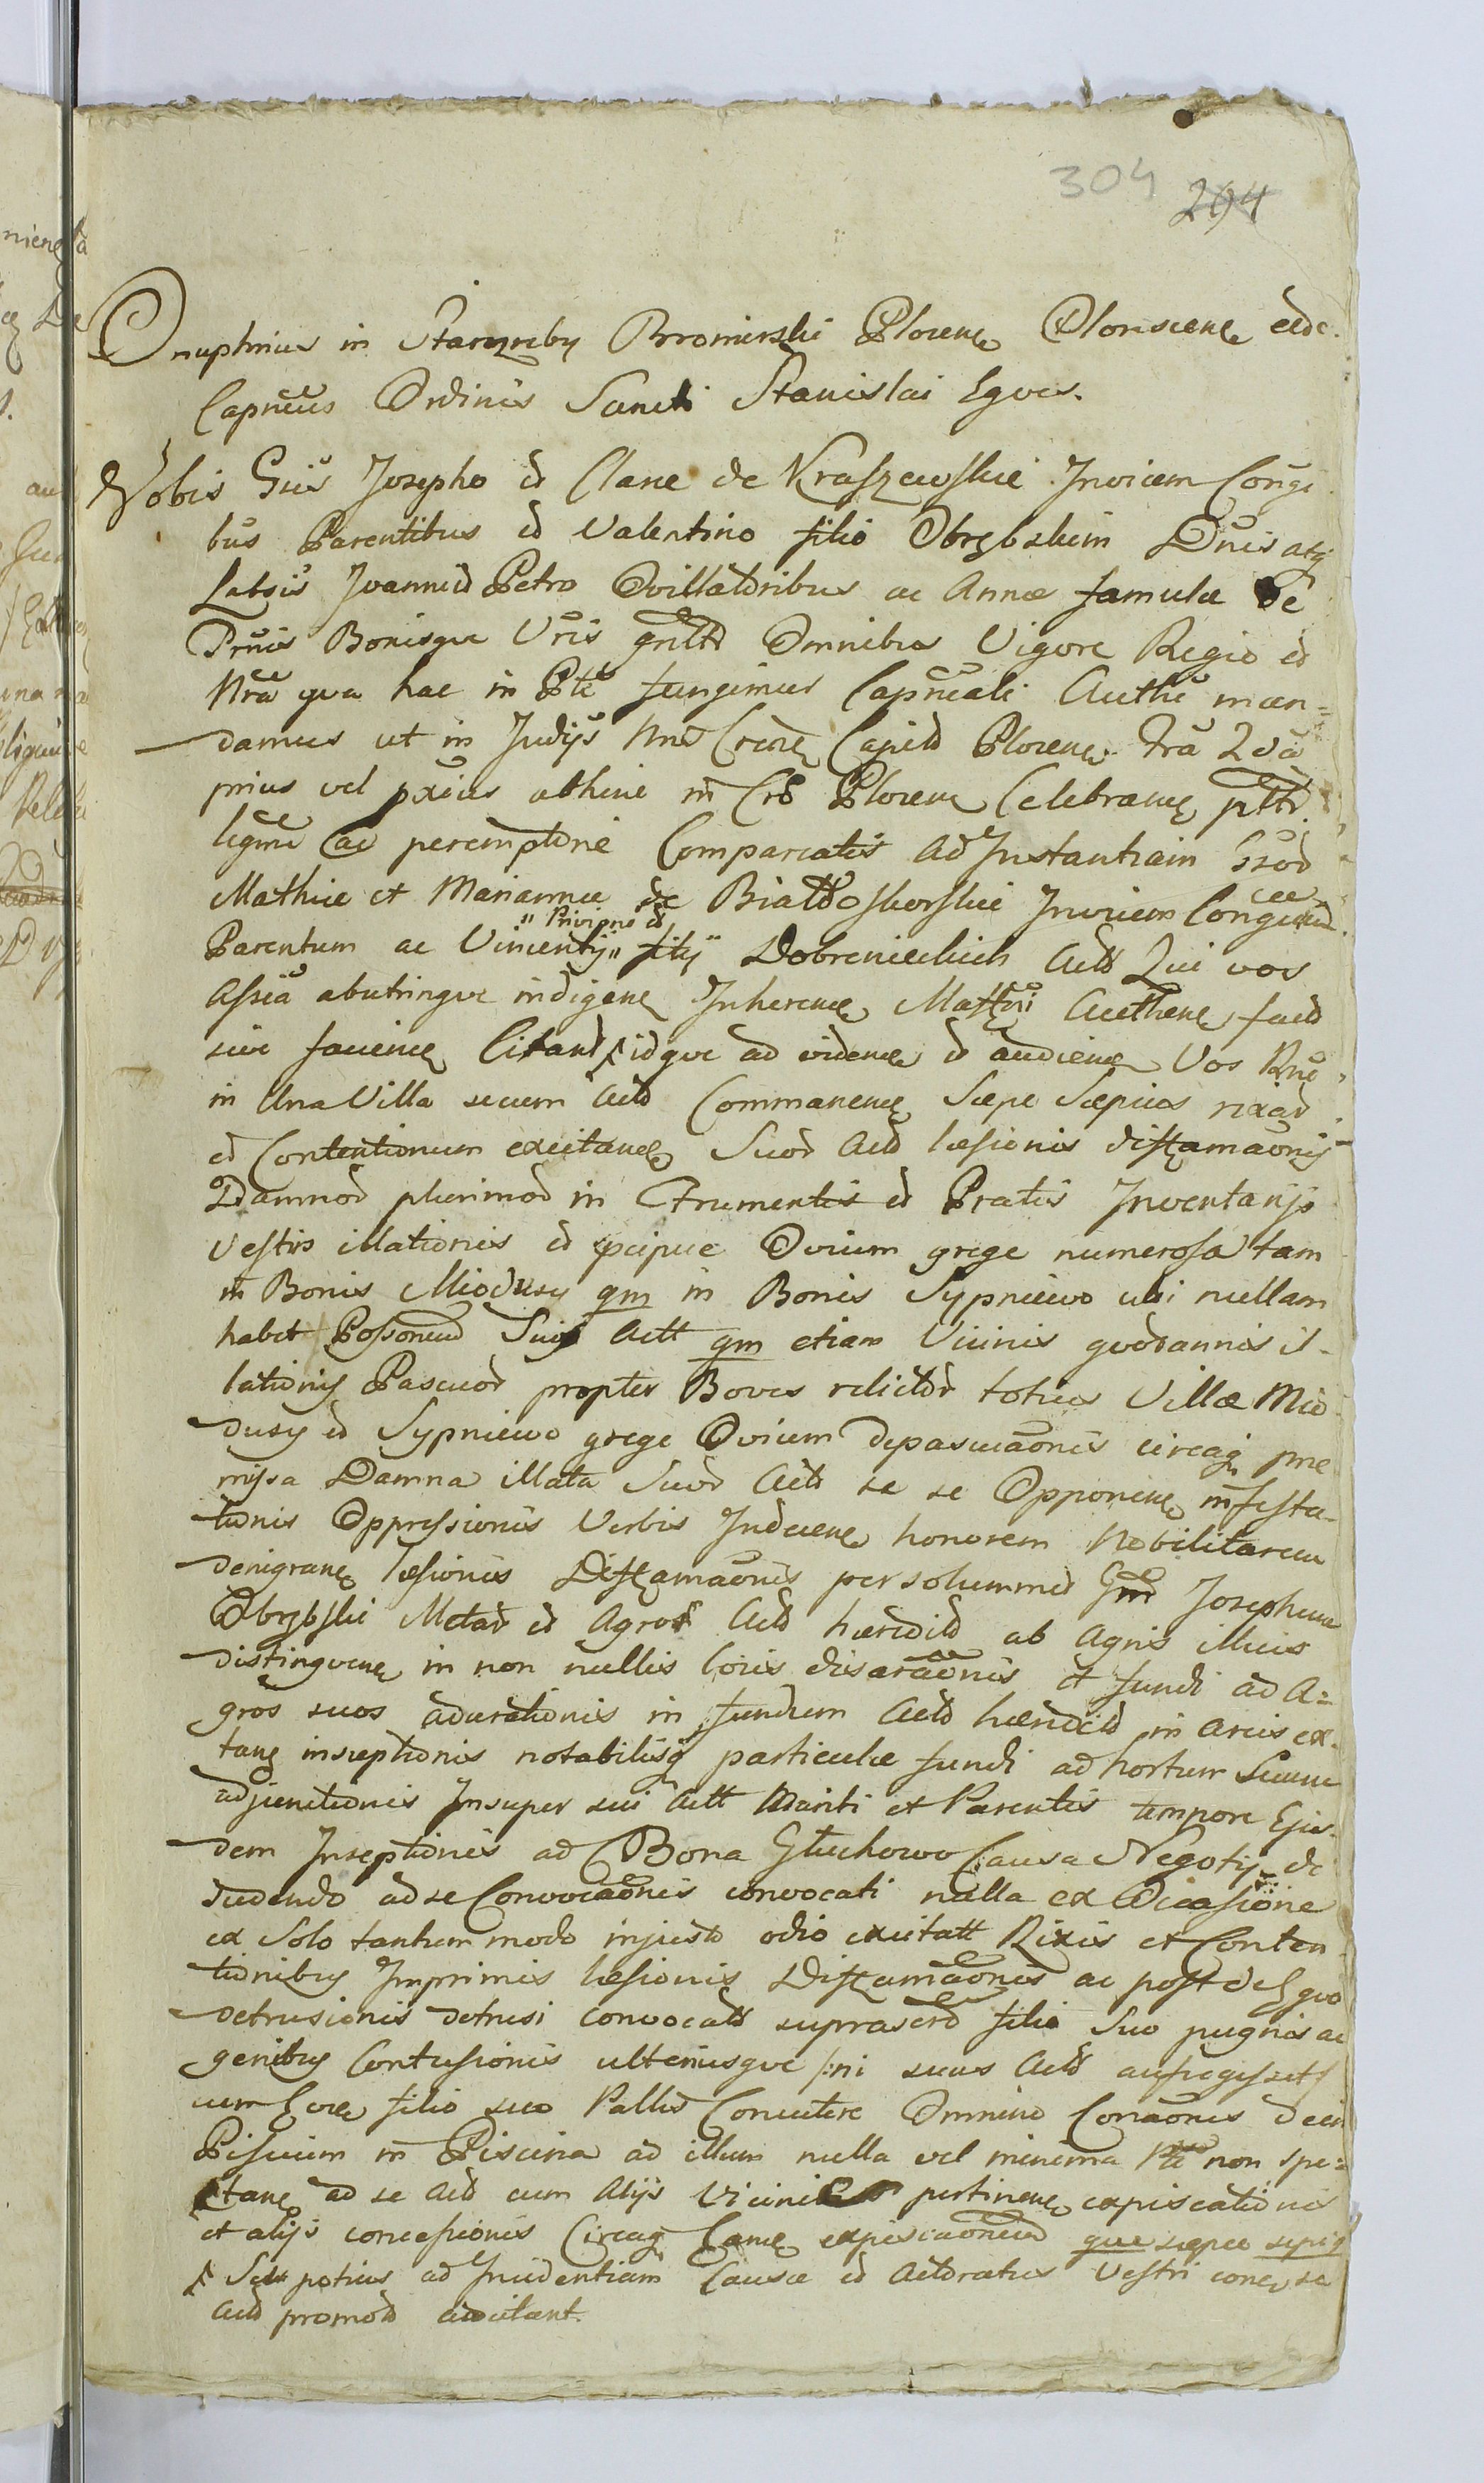 304 294
Onuphrius in Starozreby Bromirski Plocens Plonscens etc.
Capneus Ordinis Sancti Stanislai Eques.
Vobis Gsis Josepho et Clare de Kraszewskie Invicem Congi
bus Parentibus et Valentino filio Obrębskim Dnis atq
Labsis Joanni et Petro Ovillatoribus ac Annæ famulæ De
Prnis Bonisque Vris gnltr Omnibus Vigore Regio et
Nra qua hac in Pte fungimur Capneali Authe man=
damus ut in Judijs Cap Plocens fra 2da
prius vel pxius abhinc in Cro Plocens Celebrans
legme ac peremptorie Compareatis Ad Instantiam Gsor
Mathiæ et Mariannæ de Białoskorskie Invicem Conguum
" Privigno et
Parentum ac Vincentij " filij " Dobrenieckich Act Qui vos
Assia abutrinque indigene Inherens Authene fact
sive faciens Citant idque ad videns et audiens Vos Rne
in Una Villa secum Act Commanens Sæpe Sæpius rixar
et Contentionum excitans Suor Act læsionis diffamaonis
Damnor plurimor in Frumentis et Pratis Inventarijs
Vestris illationis et pcipue Ovium grege numerosa tam
in Bonis Miodusy qm in Bonis Sypniewo ubi nullam
habet Possoneum Suis Actt qm etiam Vicinis quodannis il-
lationis Pascuor propter Boves relictor totius Villæ Mio
dusy et Sypniewo grege Ovium depascuaonis circaq pre
missa Damna illata Suor Act se se Opponens infesta-
tionis Oppressionis Verbis Inducens honorem Nobilitarem
denigrans læsionis Diffamaonis per solummet Gm Josephum
Obrębski Metar et Agror Act hæredit ab Agris illius
distinguens in non nullis locis disaraonis et fundi ad A=
gros suos adaratonis in fundum Act hæredit in areis ex-
tans inseptionis notabilisq particulæ fundi ad hortum Suum
adjunctionis Insuper sui Actt Mariti et Parentis tempore Ejus-
dem Inseptionis ad Bona Głuchowo Causa Negotij de
dudendo ad se Convocaonis convocati nulla ex Occasione
ex Solo tantum modo injusto odio excitatt Rixis et Conten
tionibus Imprimis læsionis Diffamaonis ac post de Equo
detrusionis detrusi convocati suprascro filio Suo pugnis ac
genibus Contusionis ulteriusque /:ni suus Act aufugisset/
cum filio suo Pallis Concutere Omnino Conaonis dein
Piscium in Piscina ad illum nulla vel minima Pte non spe=
ctans ad se Act cum Alijs Vicinis pertinens expiscationis
et alijs concessionis Circaq expiscaoneum quæ sæpe sæpiq
Seu potius ad Incidentiam Causæ et Actoratus Vestri
Act promot